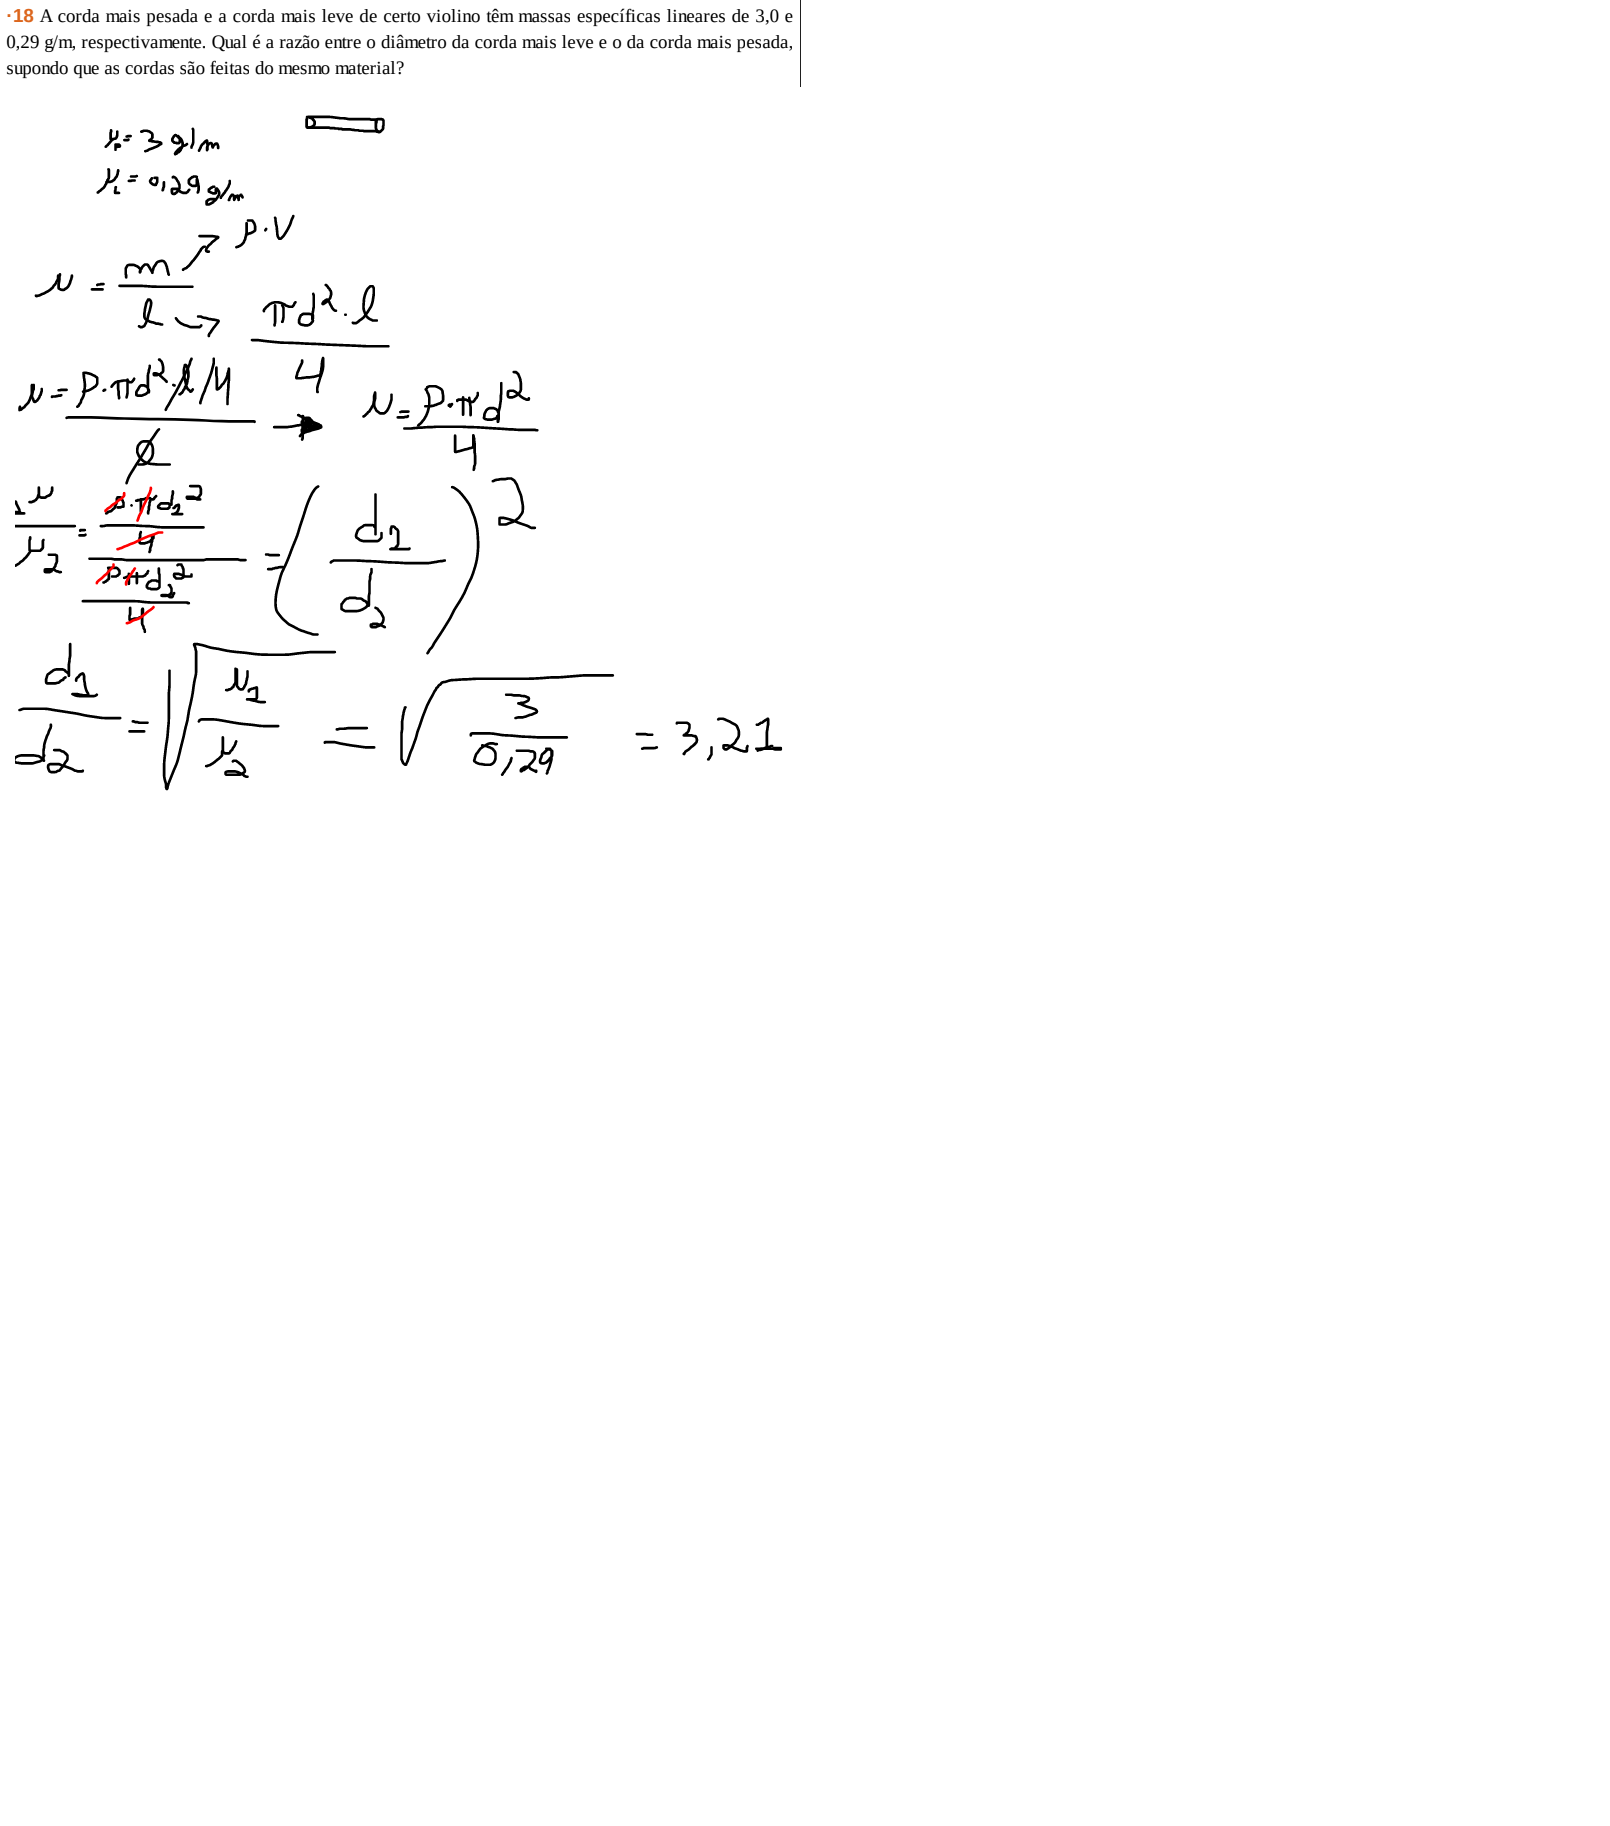 ·18 A corda mais pesada e a corda mais leve de certo violino têm massas específicas lineares de 3,0 e
0,29 g/m, respectivamente. Qual é a razão entre o diâmetro da corda mais leve e o da corda mais pesada,
supondo que as cordas são feitas do mesmo material?
μp = 3 g/m
μL = 0,29 g/m
μ = m/l → ρ·V
→ πd²·l/4
μ = (ρ·πd²·l/4)/l → μ = ρ·πd²/4
μ1/μ2 = (ρ·πd1²/4)/(ρπd2²/4) = (d1/d2)²
d1/d2 = √(μ1/μ2) = √(3/0,29) = 3,21